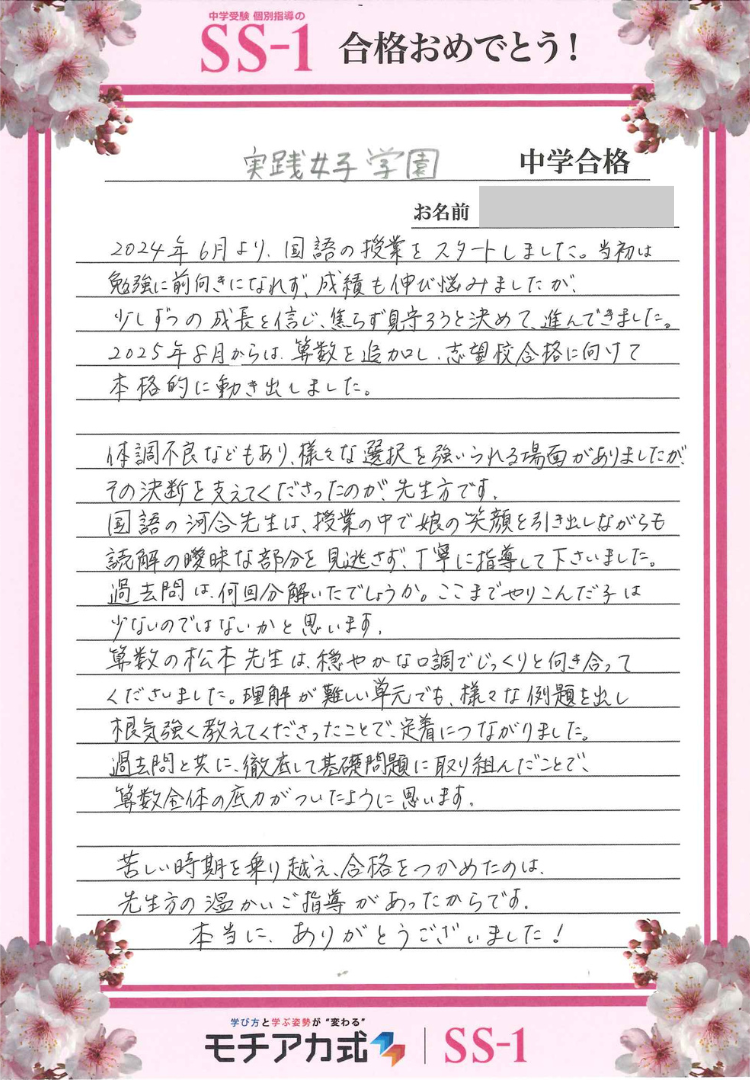 中学受験 個別指導の
SS-1 合格おめでとう!
実践女子学園 中学合格
お名前
2024年6月より、国語の授業をスタートしました。当初は
勉強に前向きになれず、成績も伸び悩みましたが、
少しずつの成長を信じ、焦らず見守ろうと決めて、進んできました。
2025年8月からは、算数を追加し、志望校合格に向けて
本格的に動き出しました。
体調不良などもあり、様々な選択を強いられる場面がありましたが、
その決断を支えてくださったのが、先生方です。
国語の河合先生は、授業の中で娘の笑顔を引き出しながらも
読解の曖昧な部分を見逃さず、丁寧に指導して下さいました。
過去問は、何回分解いたでしょうか。ここまでやりこんだ子は
少ないのではないかと思います。
算数の松本先生は、穏やかな口調でじっくりと向き合って
くださいました。理解が難しい単元でも、様々な例題を出し
根気強く教えてくださったことで、定着につながりました。
過去問と共に、徹底して基礎問題に取り組んだことで、
算数全体の底力がついたように思います。
苦しい時期を乗り越え、合格をつかめたのは、
先生方の温かいご指導があったからです。
本当に、ありがとうございました!
学び方と学ぶ姿勢が"変わる"
モチアカ式 | SS-1